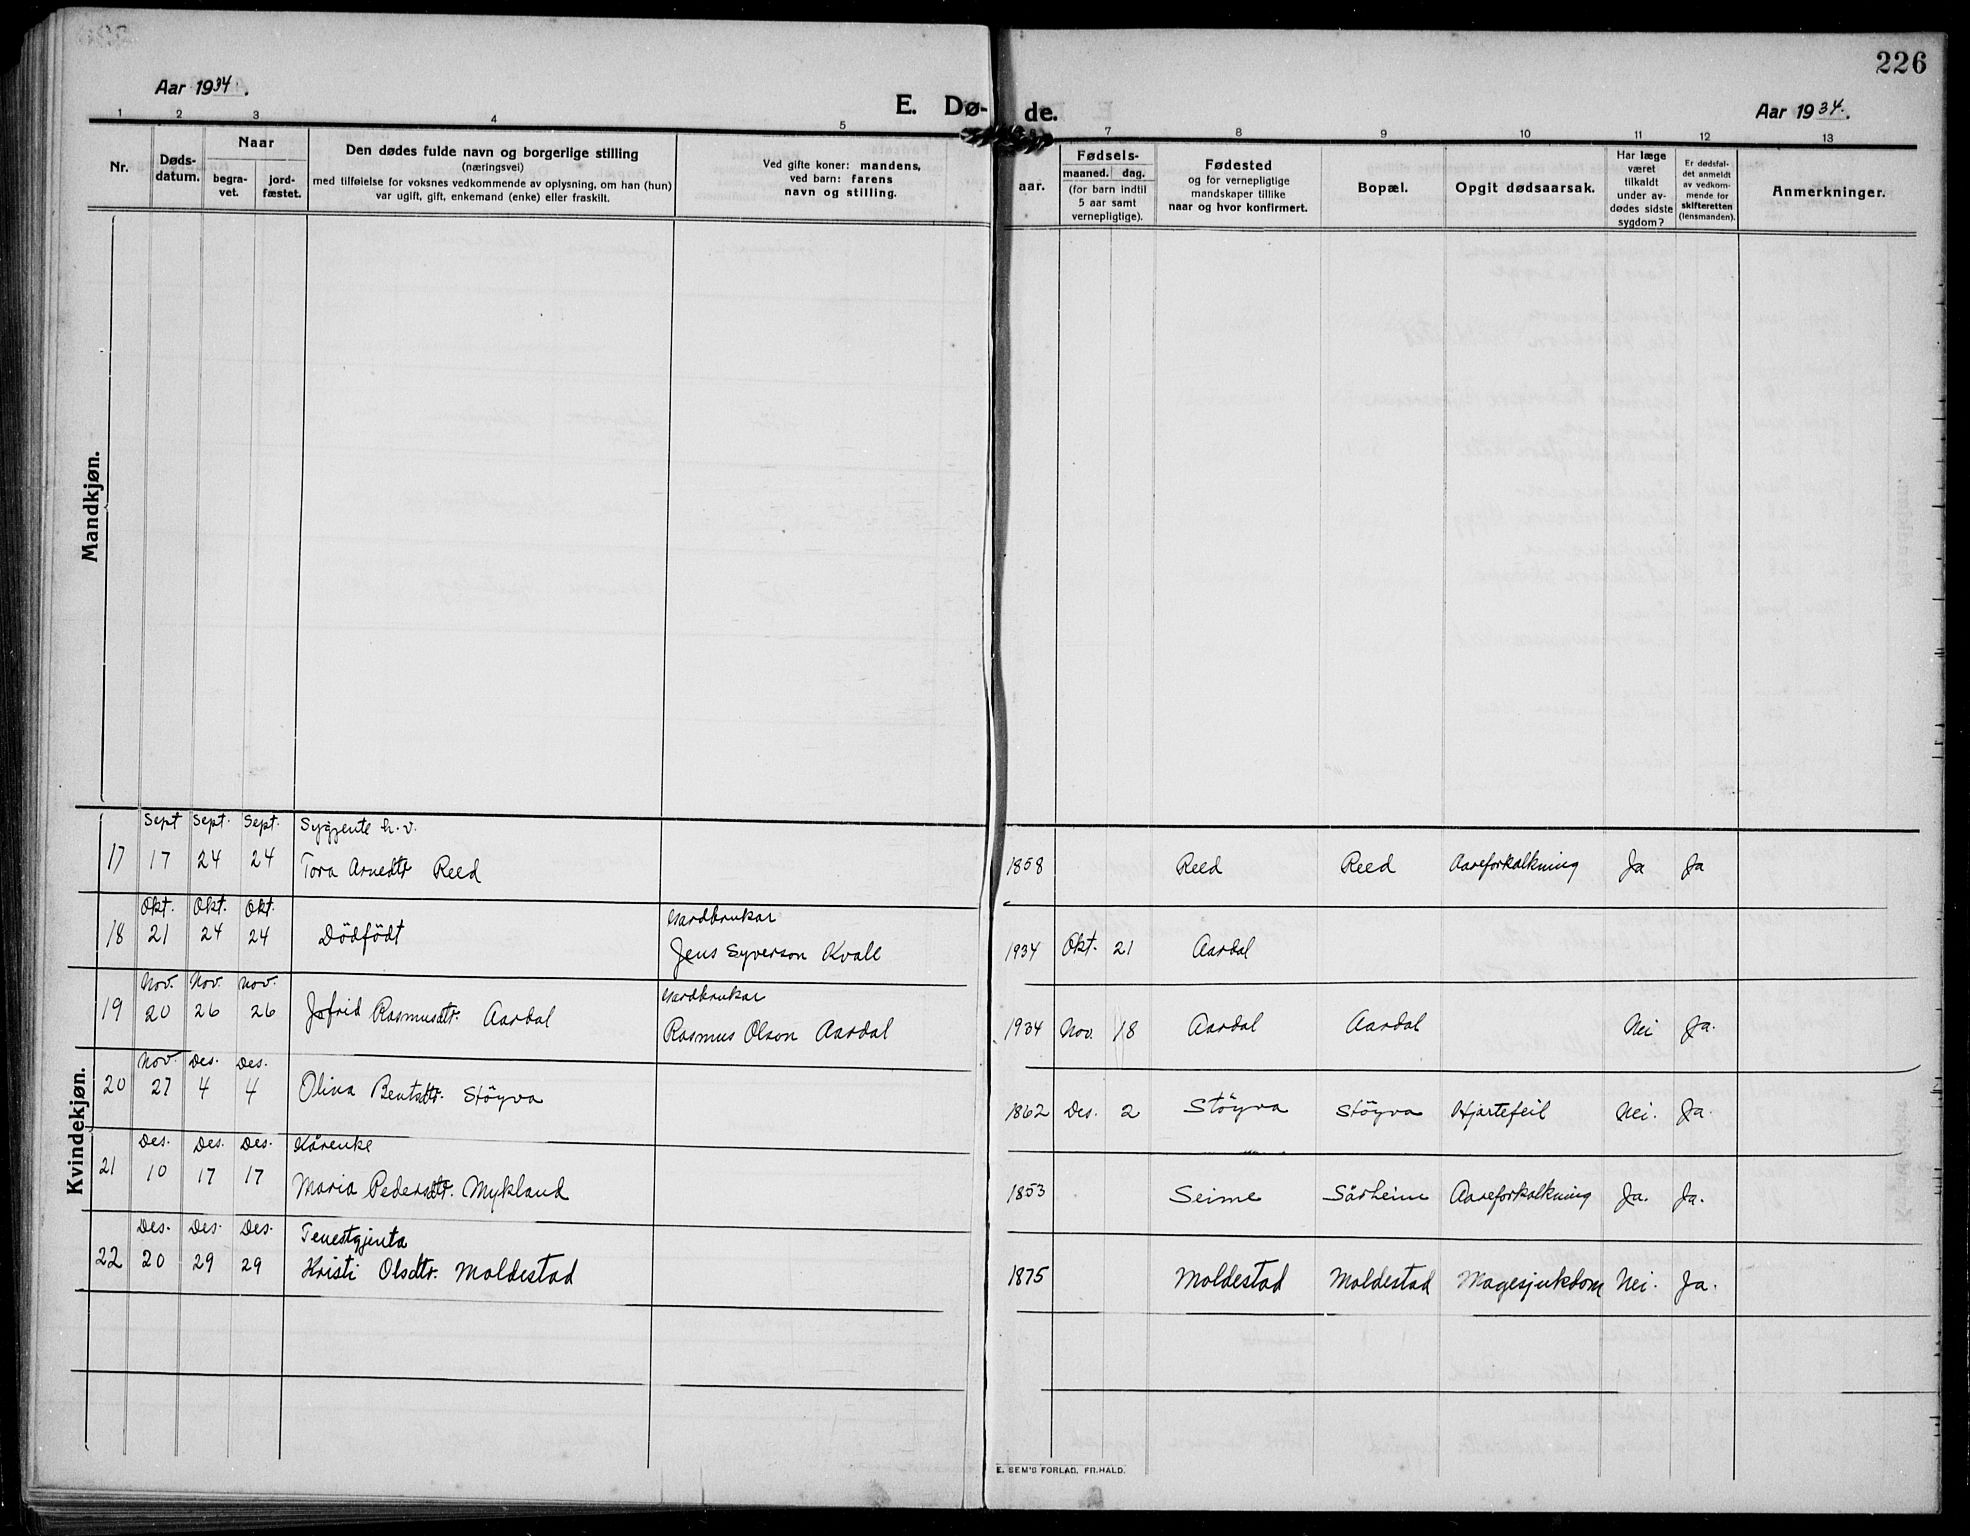 226
Aar 1934.
E. Dø- de.
Aar 1934.
1 2 3 4 5 7 8 9 10 11 12 13
Nr.
Døds-
datum.
Naar
begra-
vet.
jord-
fæstet.
Den dødes fulde navn og borgerlige stilling
(næringsvei)
med tilføielse for voksnes vedkommende av oplysning, om han (hun)
var ugift, gift, enkemand (enke) eller fraskilt.
Ved gifte koner: mandens,
ved barn: farens
navn og stilling.
aar.
Fødsels-
maaned. dag.
(for barn indtil
5 aar samt
vernepligtige).
Fødested
og for vernepligtige
mandskaper tillike
naar og hvor konfirmert.
Bopæl.
Opgit dødsaarsak.
Har læge
været
tilkaldt
under av-
dødes sidste
sygdom?
Er dødsfal-
det anmeldt
av vedkom-
mende for
skifteretten
(lensmanden).
Anmerkninger.
Mandkjøn.
Kvindekjøn.
Sept Sept. Sept. Sygjente h.v.
17 17 24 24 Tora Arnedtr Reed 1858 Reed Reed Aareforkalkning Ja Ja
Okt. Okt. Okt. Gardbrukar
18 21 24 24 Dödfödt Jens Syverson Kvall 1934 Okt. 21 Aardal
Nov. Nov. Nov. Gardbrukar
19 20 26 26 Jofrid Rasmusdtr. Aardal Rasmus Olson Aardal 1934 Nov. 18 Aardal Aardal Nei Ja.
Nov. Des. Des.
20 27 4 4 Olina Bentsdtr. Støyva 1862 Des. 2 Støyva Støyva Hjartefeil Nei. Ja.
Des. Des. Des. Kårenke
21 10 17 17 Maria Pedersdtr. Mykland 1853 Seime Sörheim Aareforkalkning Ja. Ja.
Des. Des. Des. Tenestgjenta
22 20 29 29 Kristi Olsdtr. Moldestad 1875 Moldestad Moldestad Magesjukdom Nei. Ja.
E. SEM'S FORLAG, FR.HALD.